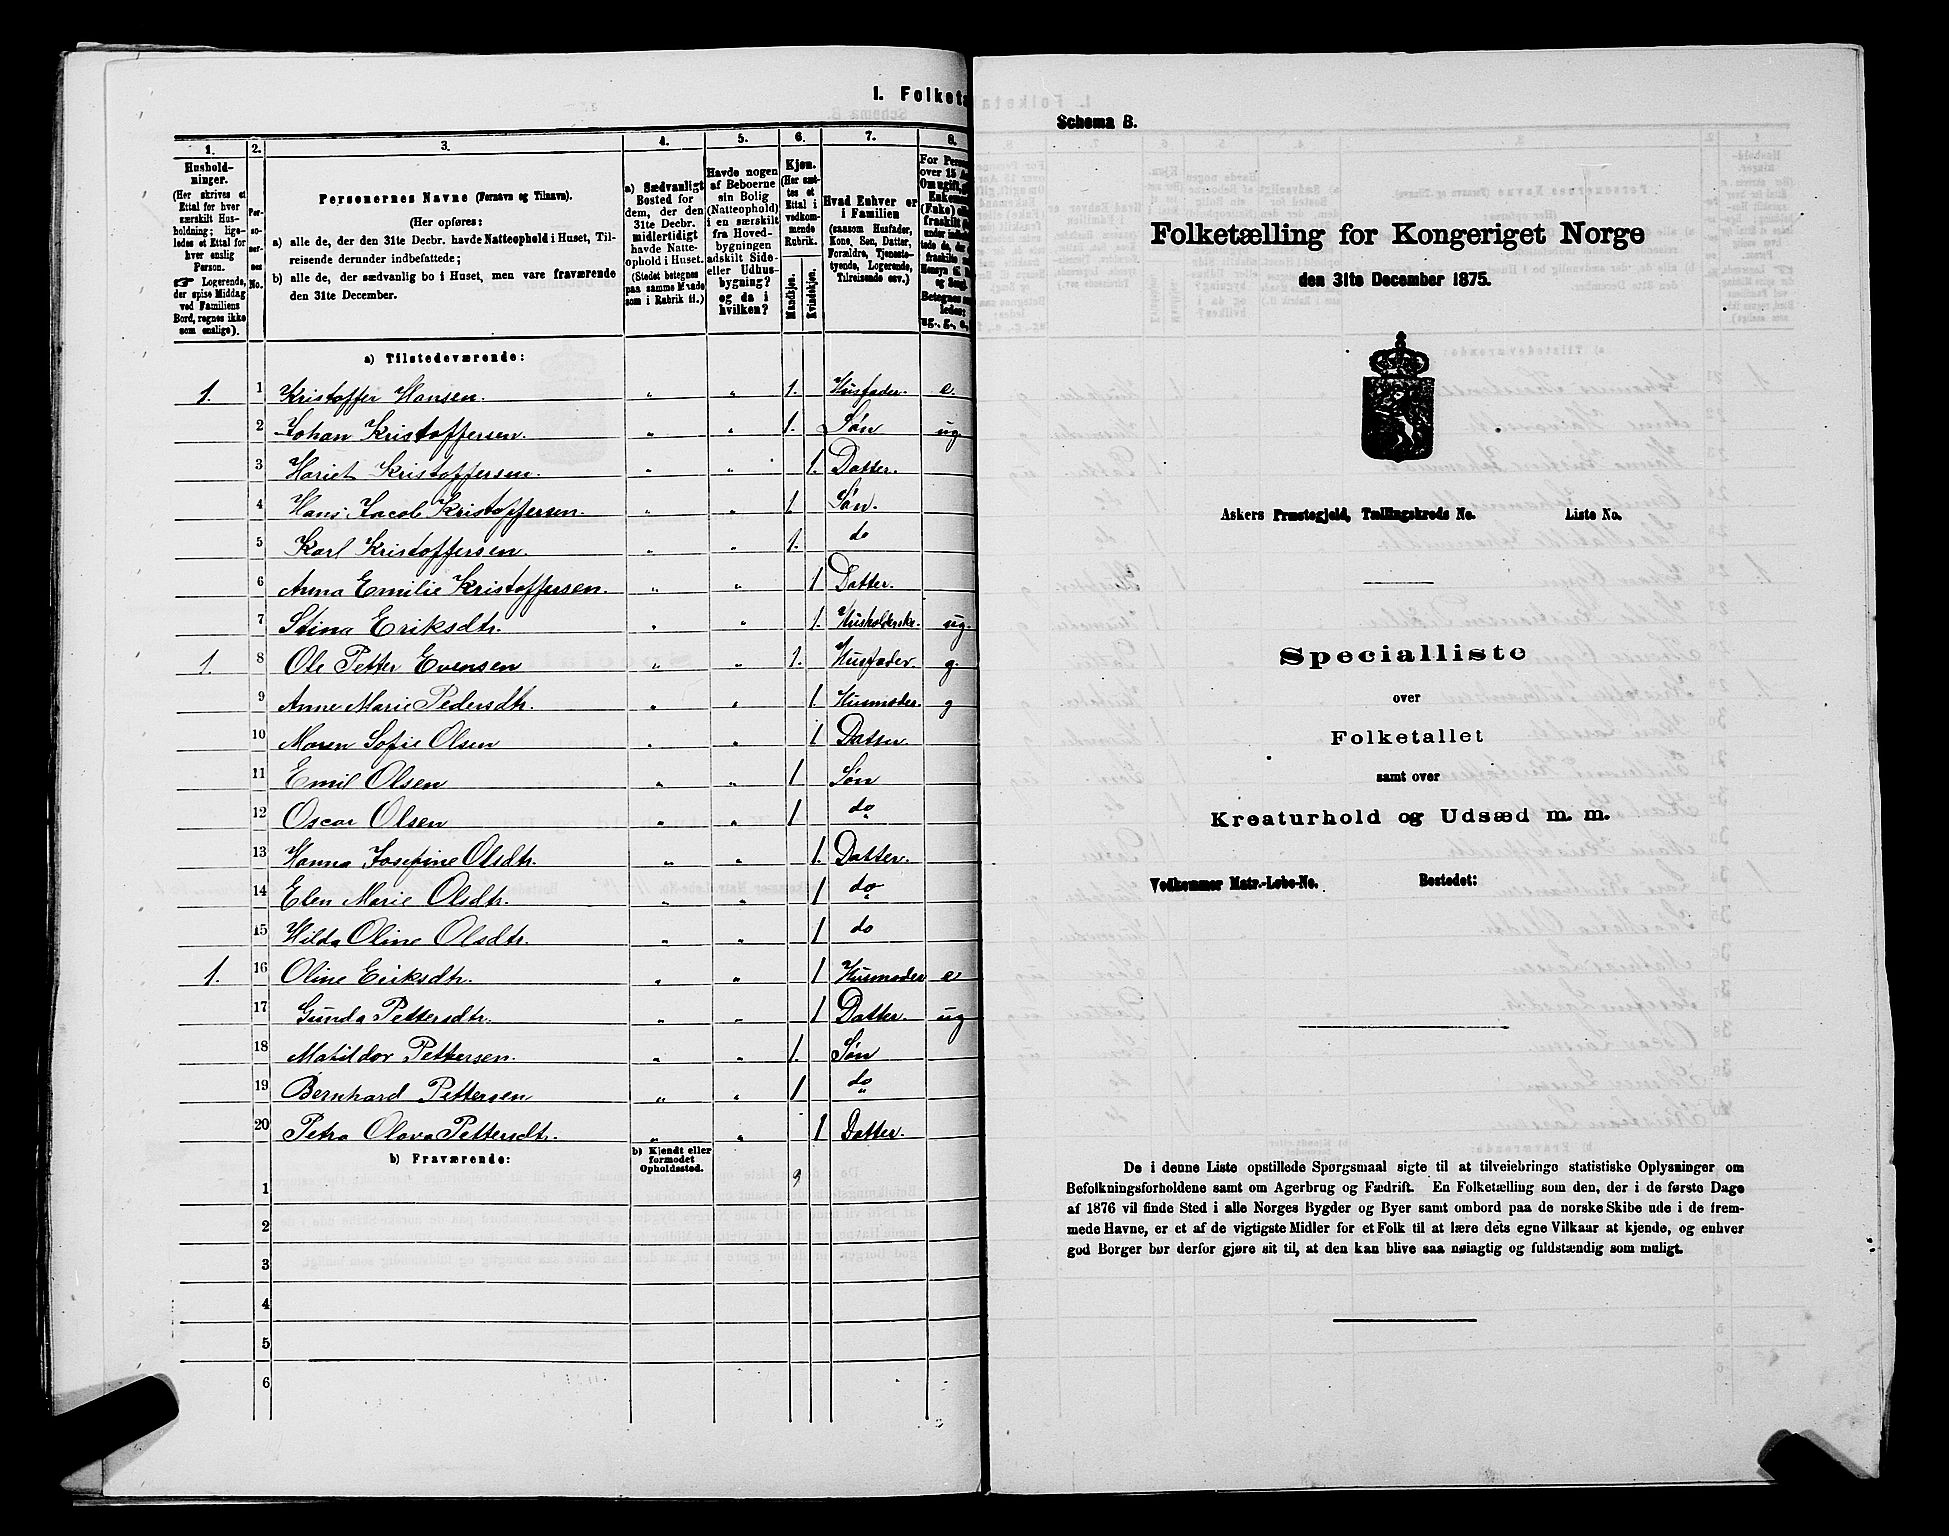 I. Folketa
1. 2. 3. 4. 5. 6. 7. 8.
Hushold-
ninger.
(Her skrives et
Ettal for hver
særskilt Hus-
holdning; lige-
ledes et Ettal for
hver enslig
Person.
☞ Logerende,
der spise Middag
ved Familiens
Bord, regnes ikke
som enslige).
Per-
so-
ner-
nes
No.
Personernes Navne (Fornavn og Tilnavn).
(Her opføres:
a) alle de, der den 31te Decbr. havde Natteophold i Huset, Til-
reisende derunder indbefattede;
b) alle de, der sædvanlig bo i Huset, men vare fraværende
den 31te December.
a) Sædvanligt
Bosted for
dem, der den
31te Decbr.
midlertidigt
havde Natte-
ophold i Huset.
(Stedet betegnes
paa samme Maade
som i Rubrik 11.)
Havde nogen
af Beboerne
sin Bolig
(Natteophold)
i en særskilt
fra Hoved-
bygningen
adskilt Side-
eller Udhus-
bygning?
og da i
hvilken?
Kjøn.
(Her sæt-
tes et
Ettal i
vedkom-
mende
Rubrik.
Mandkjøn.
Kvindekjøn.
Hvad Enhver er
i Familien
(saasom Husfader,
Kone, Søn, Datter,
Forældre, Tjeneste-
tyende, Logerende,
Tilreisende osv.)
For Person
over 15 A
Om ugift,
Enkeman
(Enke) ell
fraskilt
ug., g., e.,
a) Tilstedeværende:
1. 1 Kristoffer Hansen. " " 1. Husfader. e.
2 Johan Kristoffersen. " " 1. Søn ug
3 Hariet Kristoffersen. " " 1. Datter.
4 Hans Jacob Kristoffersen. " " 1 Søn.
5 Karl Kristoffersen " " 1. do
6 Anna Emilie Kristoffersen. " " 1 Datter.
7 Stina Eriksdtr. " " 1. Husholderske. ug.
1. 8 Ole Petter Evensen " " 1. Husfader. g.
9 Anne Marie Pedersdtr. " " 1. Husmoder. g
10 Maren Sofie Olsen " " 1 Datter.
11 Emil Olsen " " 1 Søn
12 Oscar Olsen " " 1 do
13 Hanna Josefine Olsdtr. " " 1. Datter.
14 Elen Marie Olsdtr. " " 1 do
15 Hilda Oline Olsdtr. " " 1 do
1. 16 Oline Eriksdtr. " " 1 Husmoder e
17 Gunda Pettersdtr. " " 1 Datter. ug
18 Matildor Pettersen. " " 1. Søn
19 Bernhard Pettersen " " 1 do
20 Petra Olava Pettersdtr. " " 1 Datter.
b) Fraværende:
b) Kjendt eller
formodet
Opholdssted.
1 9
2
3
4
5
6
Schema B.
Folketælling for Kongeriget Norge
den 31te December 1875.
Askers Præstegjeld, Tællingskreds No. Liste No.
Specialliste
over
Folketallet
samt over
Kreaturhold og Udsæd m. m.
Vedkommer Matr.-Løbe-No. Bostedet:
De i denne Liste opstillede Spørgsmaal sigte til at tilveiebringe statistiske Oplysninger om
Befolkningsforholdene samt om Agerbrug og Fædrift. En Folketælling som den, der i de første Dage
af 1876 vil finde Sted i alle Norges Bygder og Byer samt ombord paa de norske Skibe ude i de frem-
mede Havne, er et af de vigtigste Midler for et Folk til at lære dets egne Vilkaar at kjende, og enhver
god Borger bør derfor gjøre sit til, at den kan blive saa nøiagtig og fuldstændig som muligt.